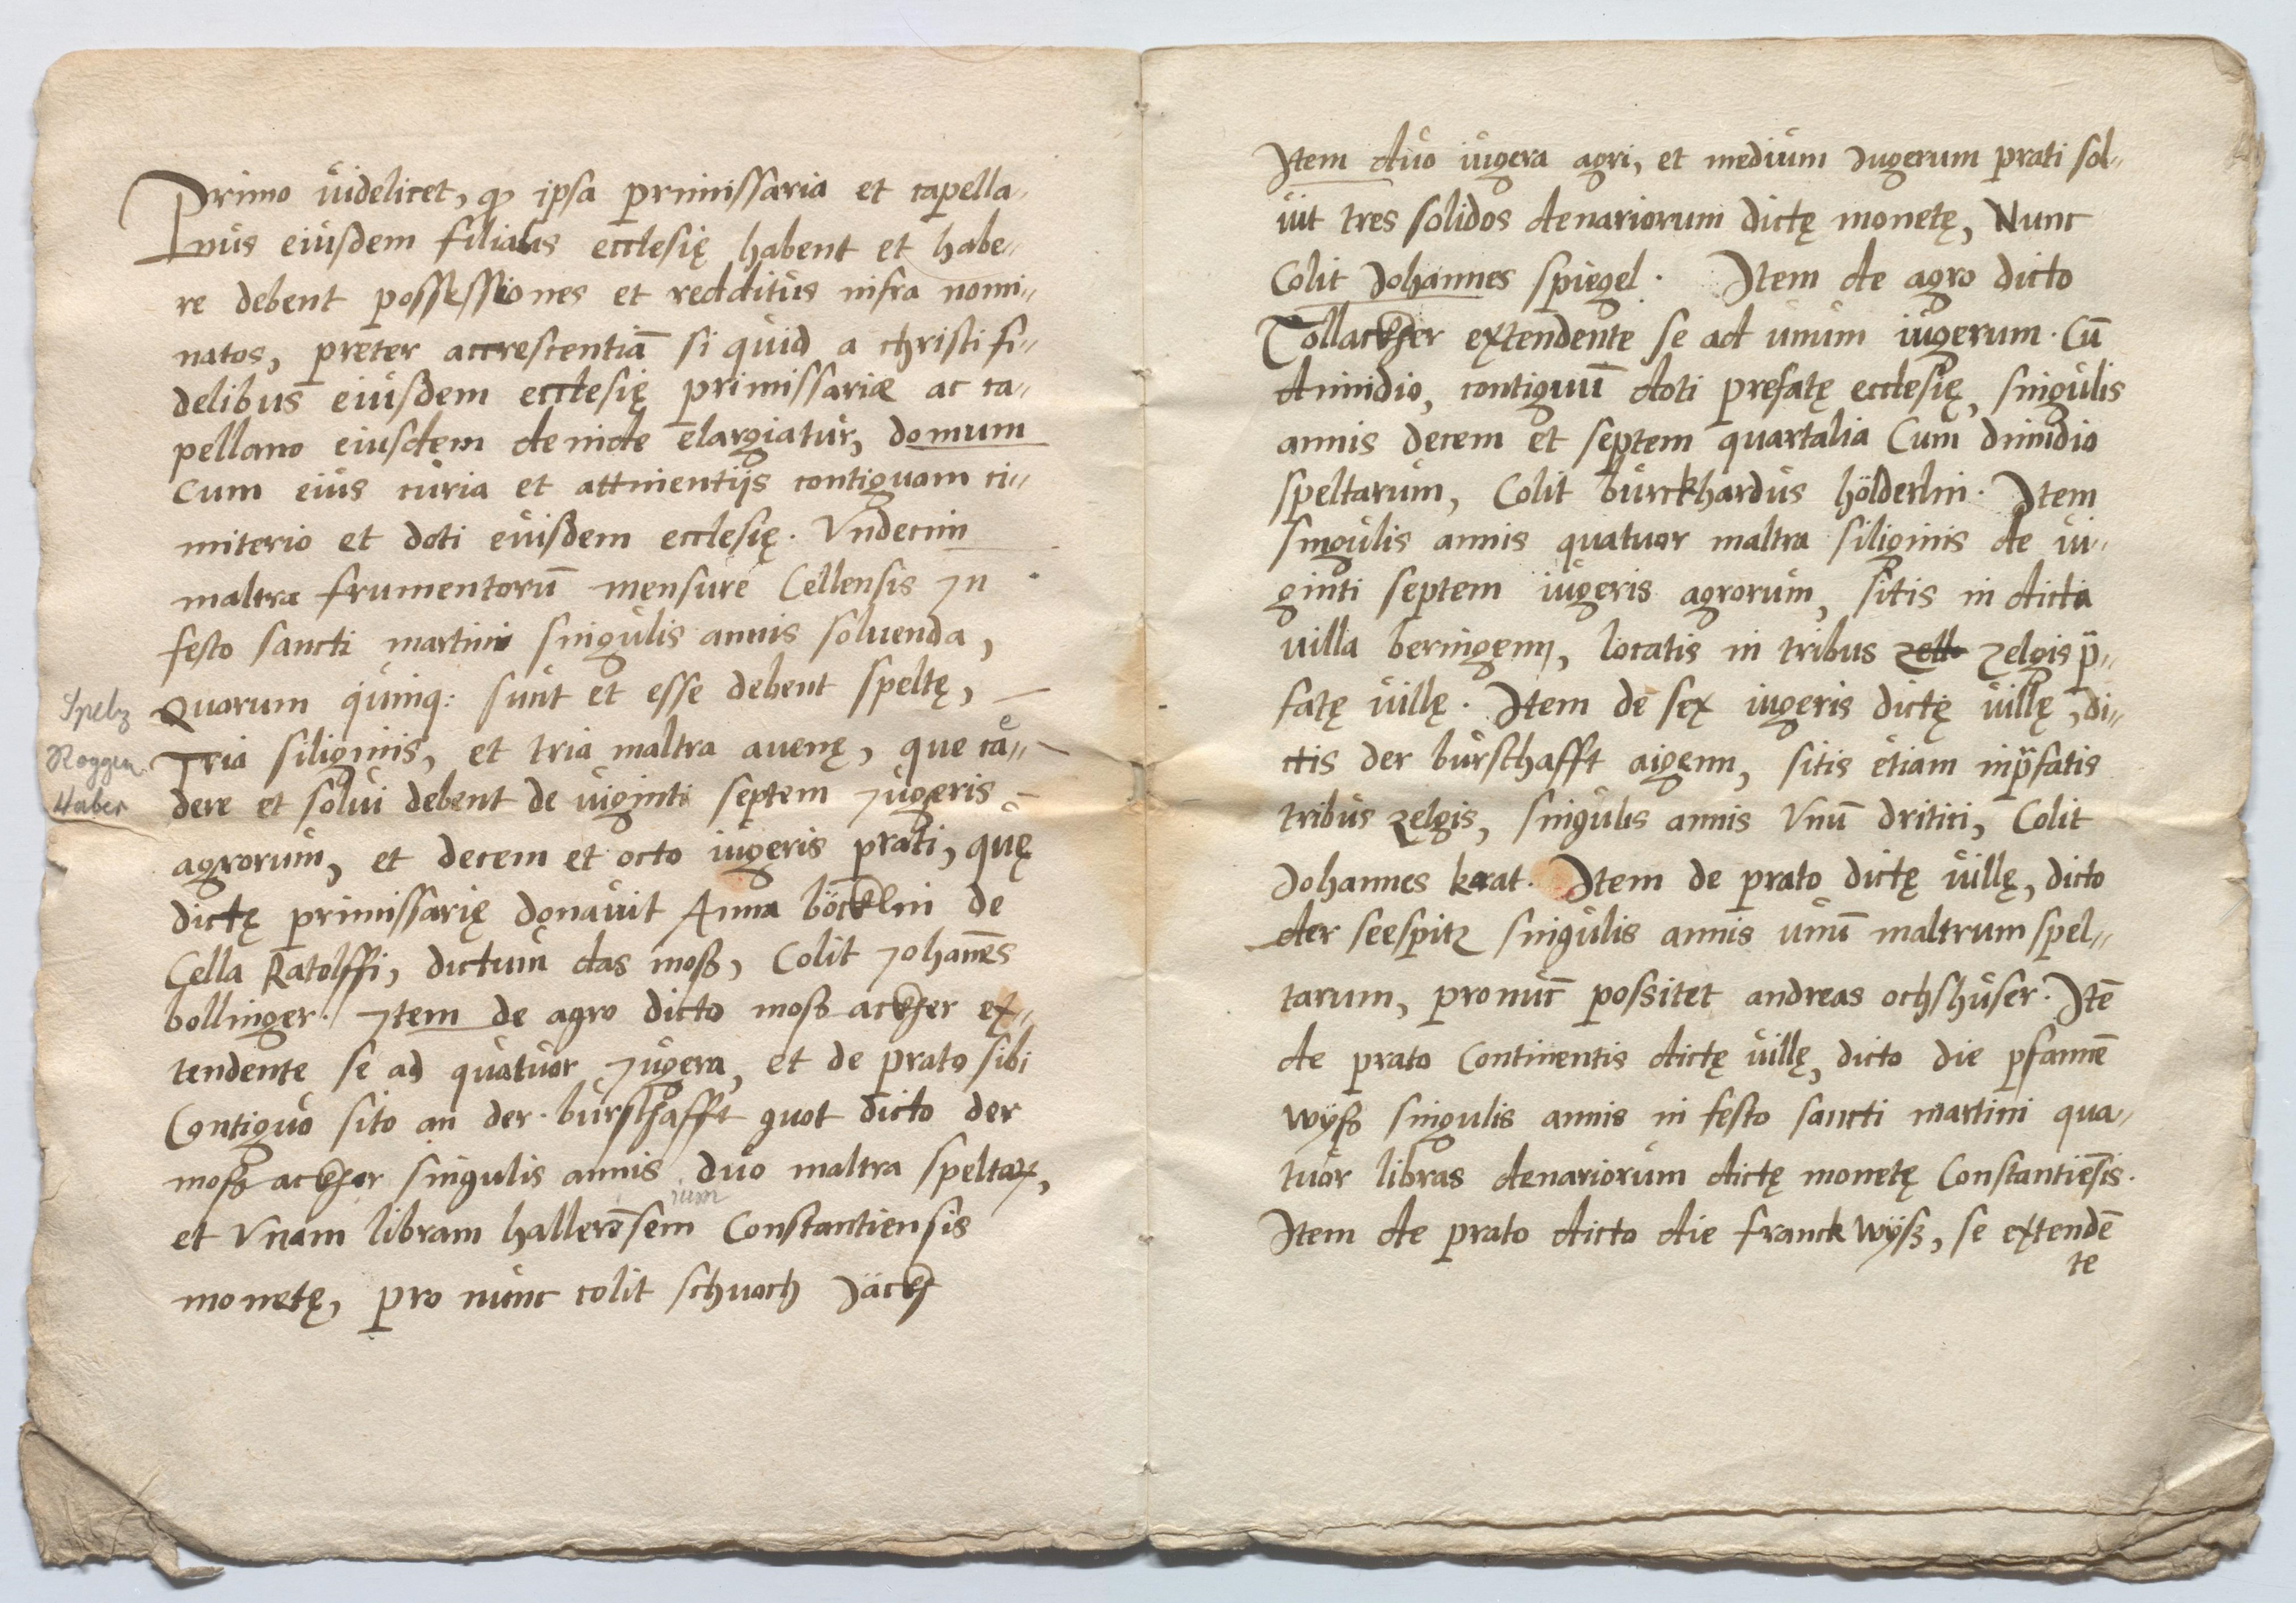 Primo videlicet, qͻ ipsa primissaria et capella-
nus eiusdem filialis ecclesię habent et habe-
re debent possessiones et redditus infra nomi-
natos, preter accrescentiā si quid a christi fi-
delibus eiusdem ecclesię primissariæ ac ca-
pellano eiusdem deinde elargiatur, domum
Cum eius curia et attinentijs contiguam ci-
miterio et doti euisdem ecclesię. Vndecim
maltra frumentorū mensure Cellensis Jn
festo sancti martini singulis annis soluenda,
Quorum quinq: sunt et esse debent speltę,
Spelz
Tria siliginis, et tria maltra auenę, que ca-
e
Roggen
dere et solui debent de viginti septem Jugeris
Haber
agrorum, et decem et octo iugeris prati, quę
dictę primissarię donauit Anna böcklin de
Cella Ratolffi, dictum das moß, Colit Johañes
bollinger. Jtem de agro dicto moß ackher ex-
tendente se ad quatuor Jugera, et de prato sibi
Contiguo sito an der burschafft guot dicto der
moß ackher singulis annis duo maltra speltaꝝ,
rum
et Vnam libram hallerēsem Constantiensis
monetę, pro nunc colit schuoch Jäckh
Jtem duo iugera agri, et medium Jugerum prati sol-
uit tres solidos denariorum dictę monetę, Nunc
Colit Johannes spiegel. Jtem de agro dicto
Tollackher extendente se ad unum iugerum. Cū
dimidio, contiguū doti prefatę ecclesię, singulis
annis decem et septem quartalia Cum dimidio
speltarum, Colit burckhardus hölderlin. Jtem
singulis annis quatuor maltra siliginis de vi-
ginti septem iugeris agrorum, sitis in dicta
villa beringenn, locatis in tribus zell zelgis p̄-
fatę villę. Jtem de sex iugeris dictę villę, di-
ctis der burschafft aigenn, sitis etiam in p̄fatis
tribus zelgis, singulis annis Vnū dritici, Colit
Johannes krat. Jtem de prato dictę villę, dicto
der seespitz singulis annis unū maltrum spel-
tarum, pro nuc̄ possitet andreas ochshuser. Jtē
de prato Continentis dictę villę, dicto die pfannē
wyß singulis annis in festo sancti martini qua-
tuor libras denariorum dictę monetę Constantiēsis.
Jtem de prato dicto die franck wyß, se extendē
te